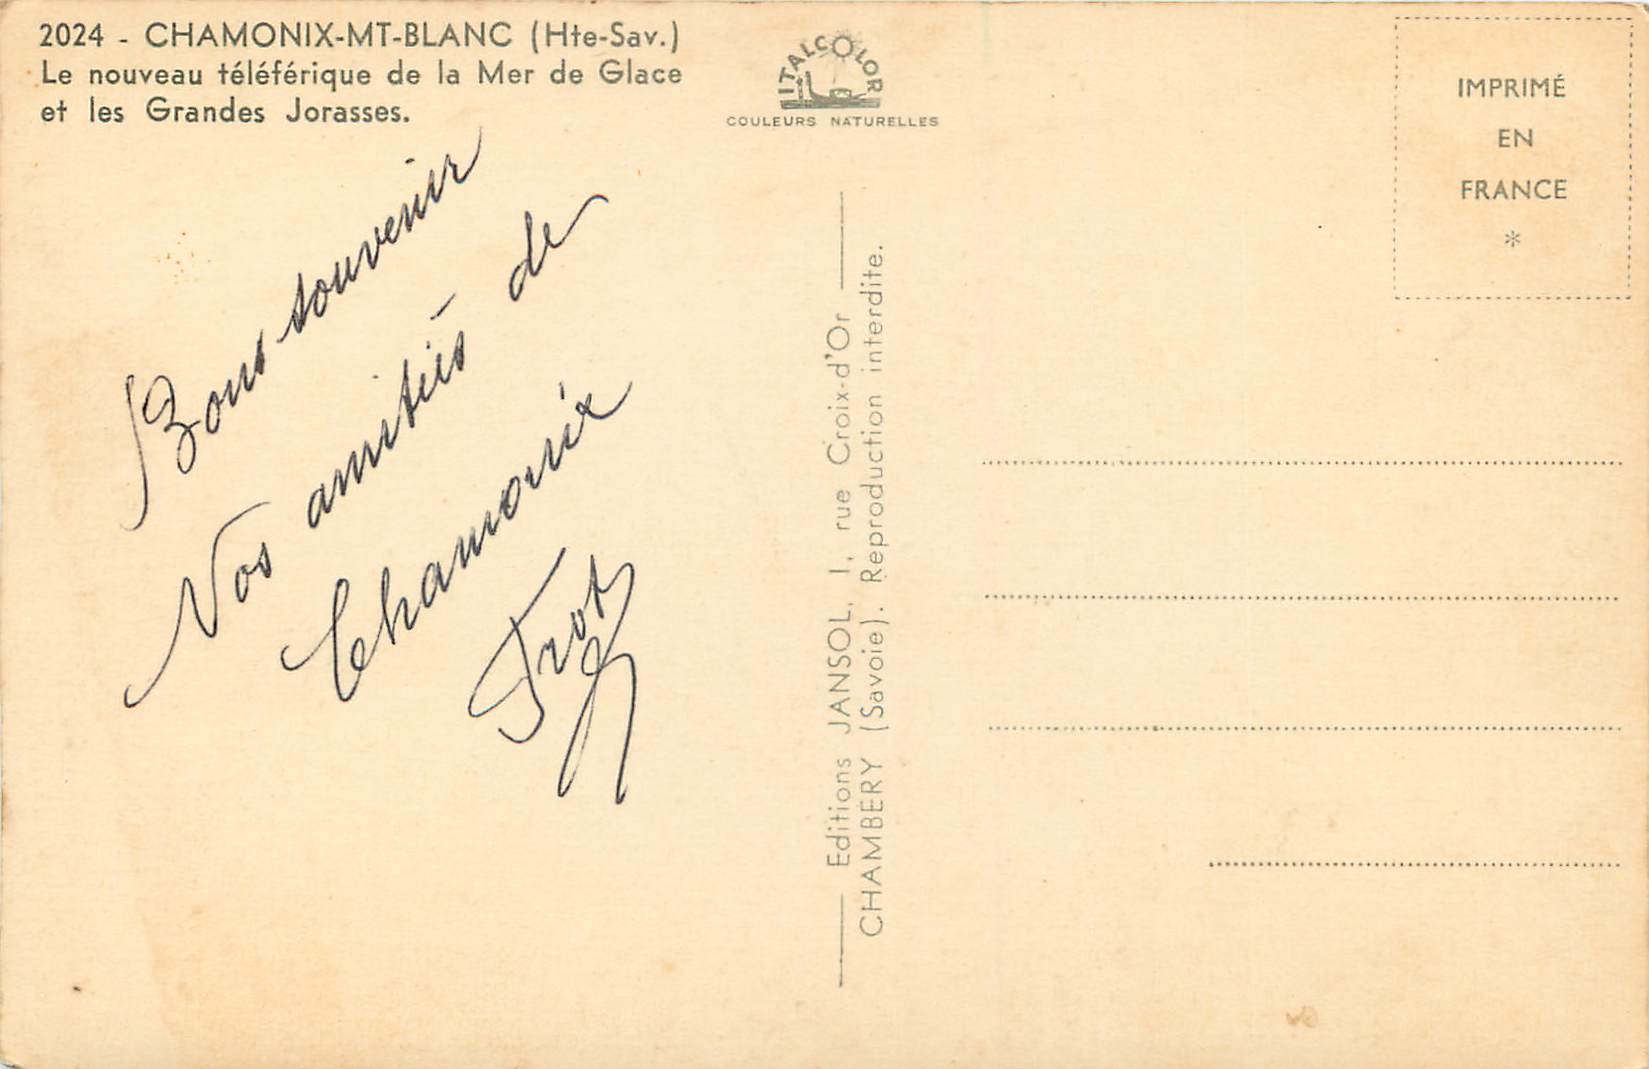 2024 - CHAMONIX-MT-BLANC (Hte-Sav.)
Le nouveau téléférique de la Mer de Glace
et les Grandes Jorasses.
ITALCOLOR
COULEURS NATURELLES
IMPRIMÉ
EN
FRANCE
*
Bons souvenir
Nos amitiés de
Chamonix
Editions JANSOL, 1, rue Croix-d'Or
CHAMBÉRY (Savoie). Reproduction interdite.